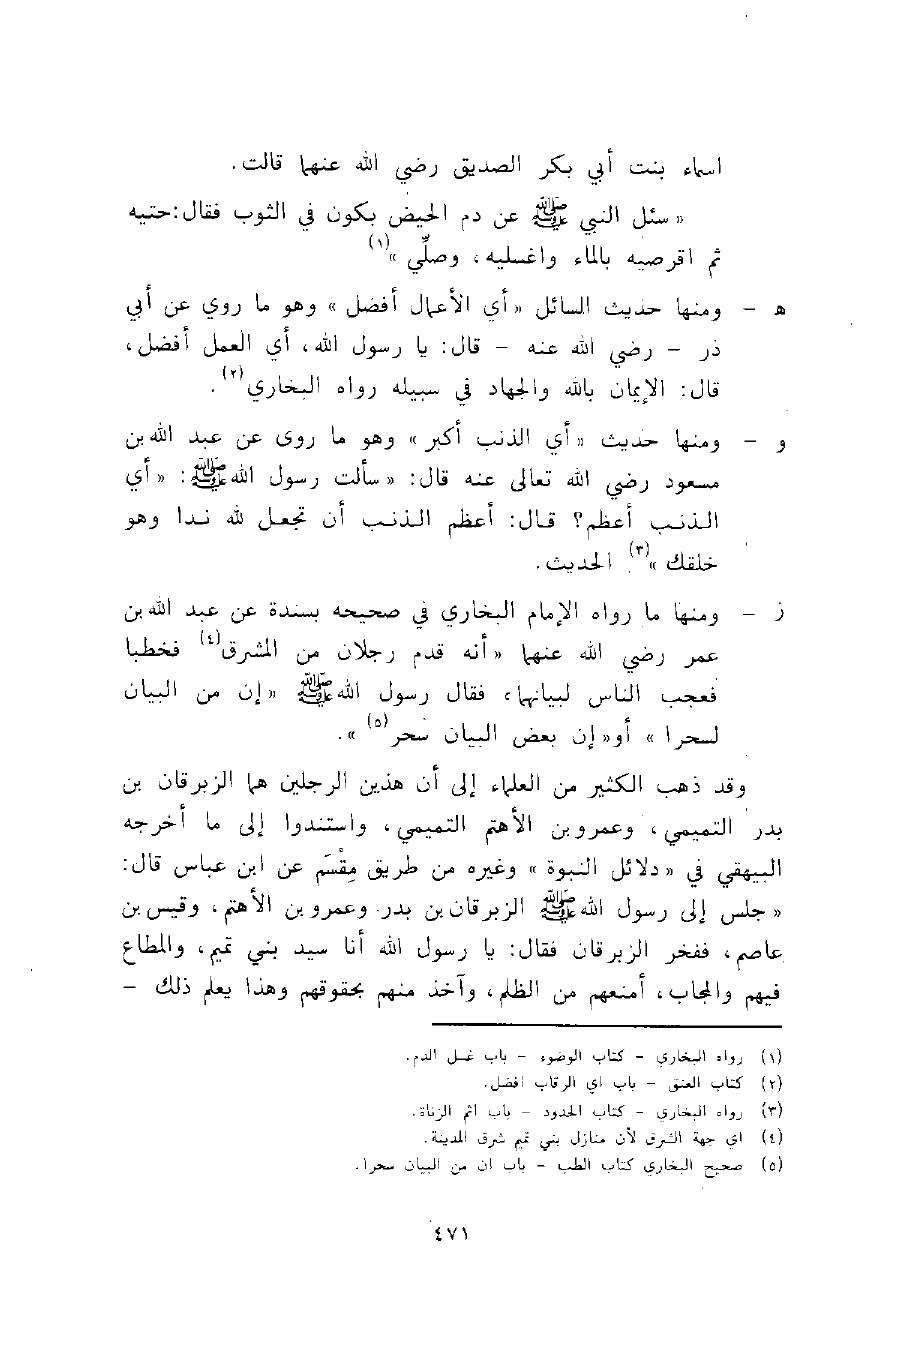 اسماء بنت أبي بكر الصديق رضي الله عنهما قالت.
« سئل النبي ﷺ عن دم الحيض يكون في الثوب فقال: حتيه
ثم اقرصيه بالماء واغسليه، وصلِّي »(١)
هـ - ومنها حديث السائل « أي الأعمال أفضل » وهو ما روي عن أبي
ذر - رضي الله عنه - قال: يا رسول الله، أي العمل أفضل،
قال: الإيمان بالله والجهاد في سبيله رواه البخاري(٢).
و - ومنها حديث « أي الذنب أكبر » وهو ما روى عن عبد الله بن
مسعود رضي الله تعالى عنه قال: « سألت رسول الله ﷺ: « أي
الذنب أعظم؟ قال: أعظم الذنب أن تجعل لله ندا وهو
خلقك »(٣). الحديث.
ز - ومنها ما رواه الإمام البخاري في صحيحه بسندة عن عبد الله بن
عمر رضي الله عنهما « أنه قدم رجلان من المشرق(٤) فخطبا
فعجب الناس لبيانهما، فقال رسول الله ﷺ « إن من البيان
لسحرا » أو « إن بعض البيان سحر(٥) ».
وقد ذهب الكثير من العلماء إلى أن هذين الرجلين هما الزبرقان بن
بدر التميمي، وعمرو بن الأهتم التميمي، واستندوا إلى ما أخرجه
البيهقي في « دلائل النبوة » وغيره من طريق مِقْسَم عن ابن عباس قال:
« جلس إلى رسول الله ﷺ الزبرقان بن بدر وعمرو بن الأهتم، وقيس بن
عاصم، ففخر الزبرقان فقال: يا رسول الله أنا سيد بني تميم، والمطاع
فيهم والمجاب، أمنعهم من الظلم، وآخذ منهم بحقوقهم وهذا يعلم ذلك -
(١) رواه البخاري - كتاب الوضوء - باب غسل الدم.
(٢) كتاب العتق - باب اي الرقاب افضل.
(٣) رواه البخاري - كتاب الحدود - باب اثم الزناة.
(٤) اي جهة الشرق لأن منازل بني تميم شرق المدينة.
(٥) صحيح البخاري كتاب الطب - باب ان من البيان سحرا.
٤٧١